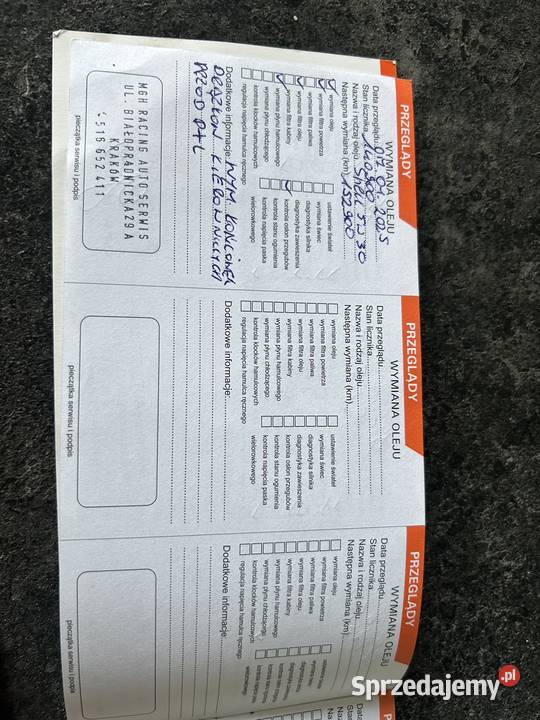 PRZEGLĄDY
WYMIANA OLEJU
Data przeglądu 2025
Stan licznika 140.900
Nazwa i rodzaj oleju SHELL 5W30
Następna wymiana (km) 152.900
wymiana oleju
wymiana filtra powietrza
wymiana filtra paliwa
wymiana filtra oleju
wymiana filtra kabiny
wymiana płynu hamulcowego
wymiana płynu chłodzącego
kontrola klocków hamulcowych
regulacja napięcia hamulca ręcznego
ustawienie świateł
wymiana świec
diagnostyka silnika
diagnostyka zawieszenia
kontrola osłon przegubów
kontrola stanu ogumienia
kontrola napięcia paska
wielorowkowego
Dodatkowe informacje: WYM. KOŃCÓWEK
DRĄŻKÓW KIEROWNICZYCH
PRZÓD P+L
MGH RACING AUTO SERWIS
UL. BIAŁOPRĄDNICKA 29 A
KRAKÓW
516 652 411
pieczątka serwisu i podpis
PRZEGLĄDY
WYMIANA OLEJU
Data przeglądu
Stan licznika
Nazwa i rodzaj oleju
Następna wymiana (km)
wymiana oleju
wymiana filtra powietrza
wymiana filtra paliwa
wymiana filtra oleju
wymiana filtra kabiny
wymiana płynu hamulcowego
wymiana płynu chłodzącego
kontrola klocków hamulcowych
regulacja napięcia hamulca ręcznego
ustawienie świateł
wymiana świec
diagnostyka silnika
diagnostyka zawieszenia
kontrola osłon przegubów
kontrola stanu ogumienia
kontrola napięcia paska
wielorowkowego
Dodatkowe informacje:
pieczątka serwisu i podpis
PRZEGLĄDY
WYMIANA OLEJU
Data przeglądu
Stan licznika
Nazwa i rodzaj oleju
Następna wymiana (km)
wymiana oleju
wymiana filtra powietrza
wymiana filtra paliwa
wymiana filtra oleju
wymiana filtra kabiny
wymiana płynu hamulcowego
wymiana płynu chłodzącego
kontrola klocków hamulcowych
regulacja napięcia hamulca ręcznego
Dodatkowe informacje:
pieczątka serwisu i podpis
Sprzedajemy.pl